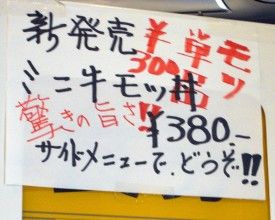 新発売 モツ
単品
¥300
ミニ牛モツ丼
驚きの旨さ!! ¥380.-
サイドメニューで、どうぞ!!